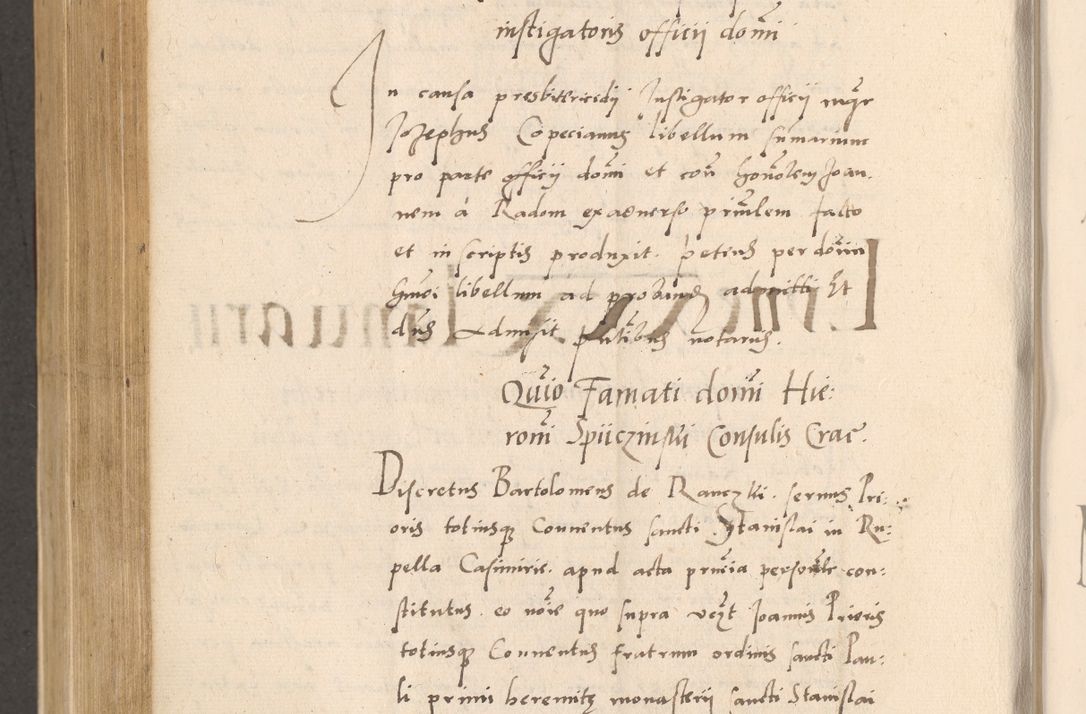 instigatoris officii domi
In causa presbitericidii Instigator officii mgr
Jozephus Copecianus libellum sumarium
pro parte officii domi et con honolem Joan.
nem a Radom ex adverso prinlem facto
et in scriptis produxit. petens per domin
hmoi libellum ad proband admitti Et
dns admisit pntibus notariis.
Quio Famati domi Hie:
romi Spiiczinski Consulis Crac.
Discretus Bartolomeus de Ranczki. servus Pri:
oris totiusq Conventus sancti Stanislai in Ru:
pella Casimiris. apud acta pntia personlr con:
stitutus. eo noie quo supra vczt Joannis Prioris
totiusq Conventus fratrum ordinis sancti Pau:
li primi heremite monasterii sancti Stanislai